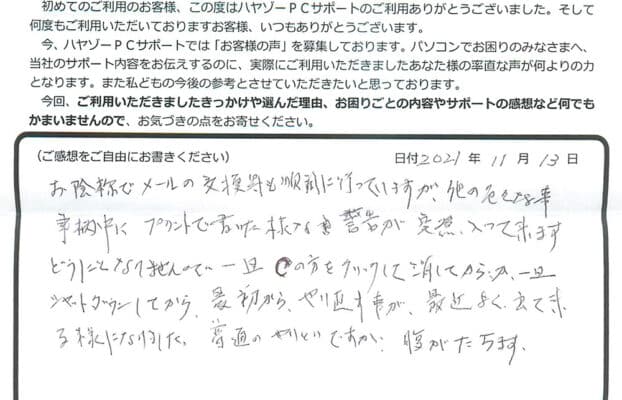 初めてのご利用のお客様、この度はハヤゾーPCサポートのご利用ありがとうございました。そして
何度もご利用いただいておりますお客様、いつもありがとうございます。
今、ハヤゾーPCサポートでは「お客様の声」を募集しております。パソコンでお困りのみなさまへ、
当社のサポート内容をお伝えするのに、実際にご利用いただきましたあなた様の率直な声が何よりの力
となります。また私どもの今後の参考とさせていただきたいと思っております。
今回、ご利用いただきましたきっかけや選んだ理由、お困りごとの内容やサポートの感想など何でも
かまいませんので、お気づきの点をお寄せください。
(ご感想をご自由にお書きください) 日付 2021 年 11 月 13 日
お陰様でメールの交換等も順調に行っていますが、他の色々な
事柄中に プリントで書いた様な 警告が 突然、入って来ます
どうにもなりませんので 一旦 の方をクリックして消してからか、一旦
シャットダウンしてから、最初から、やり直す事が、最近よく出て来
る様になりました。普通の ですか? 腹がたちます。